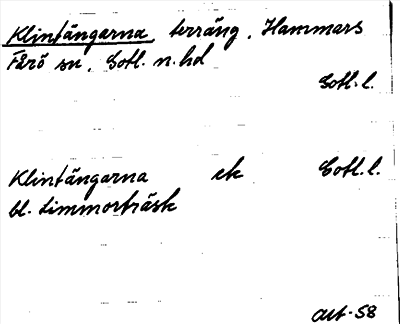 Klintängarna, terräng, Hammars
Fårö sn, Gotl. n. hd
Gotl. l.
Klintängarna ek Gotl. l.
bl. Limmorträsk
Art -58